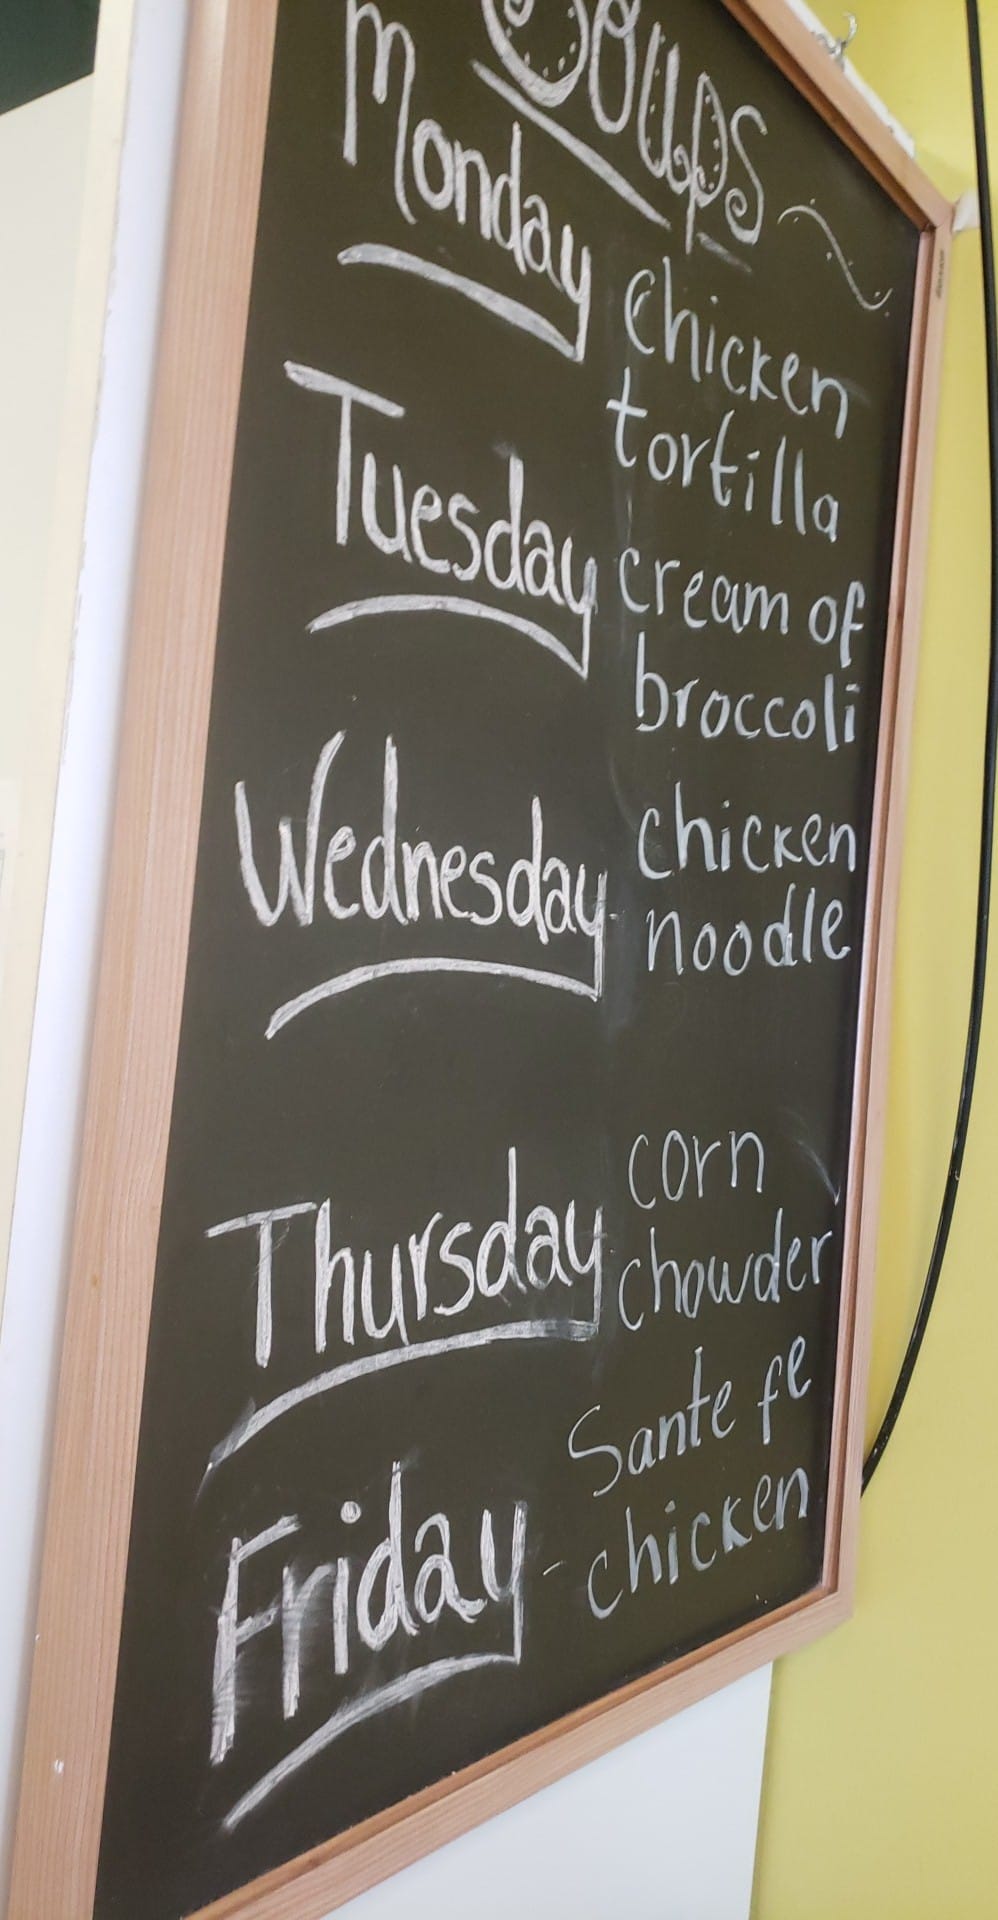 Soups
Monday
chicken
tortilla
Tuesday
cream of
broccoli
Wednesday-
chicken
noodle
Thursday
corn
chowder
Friday-
Sante fe
chicken